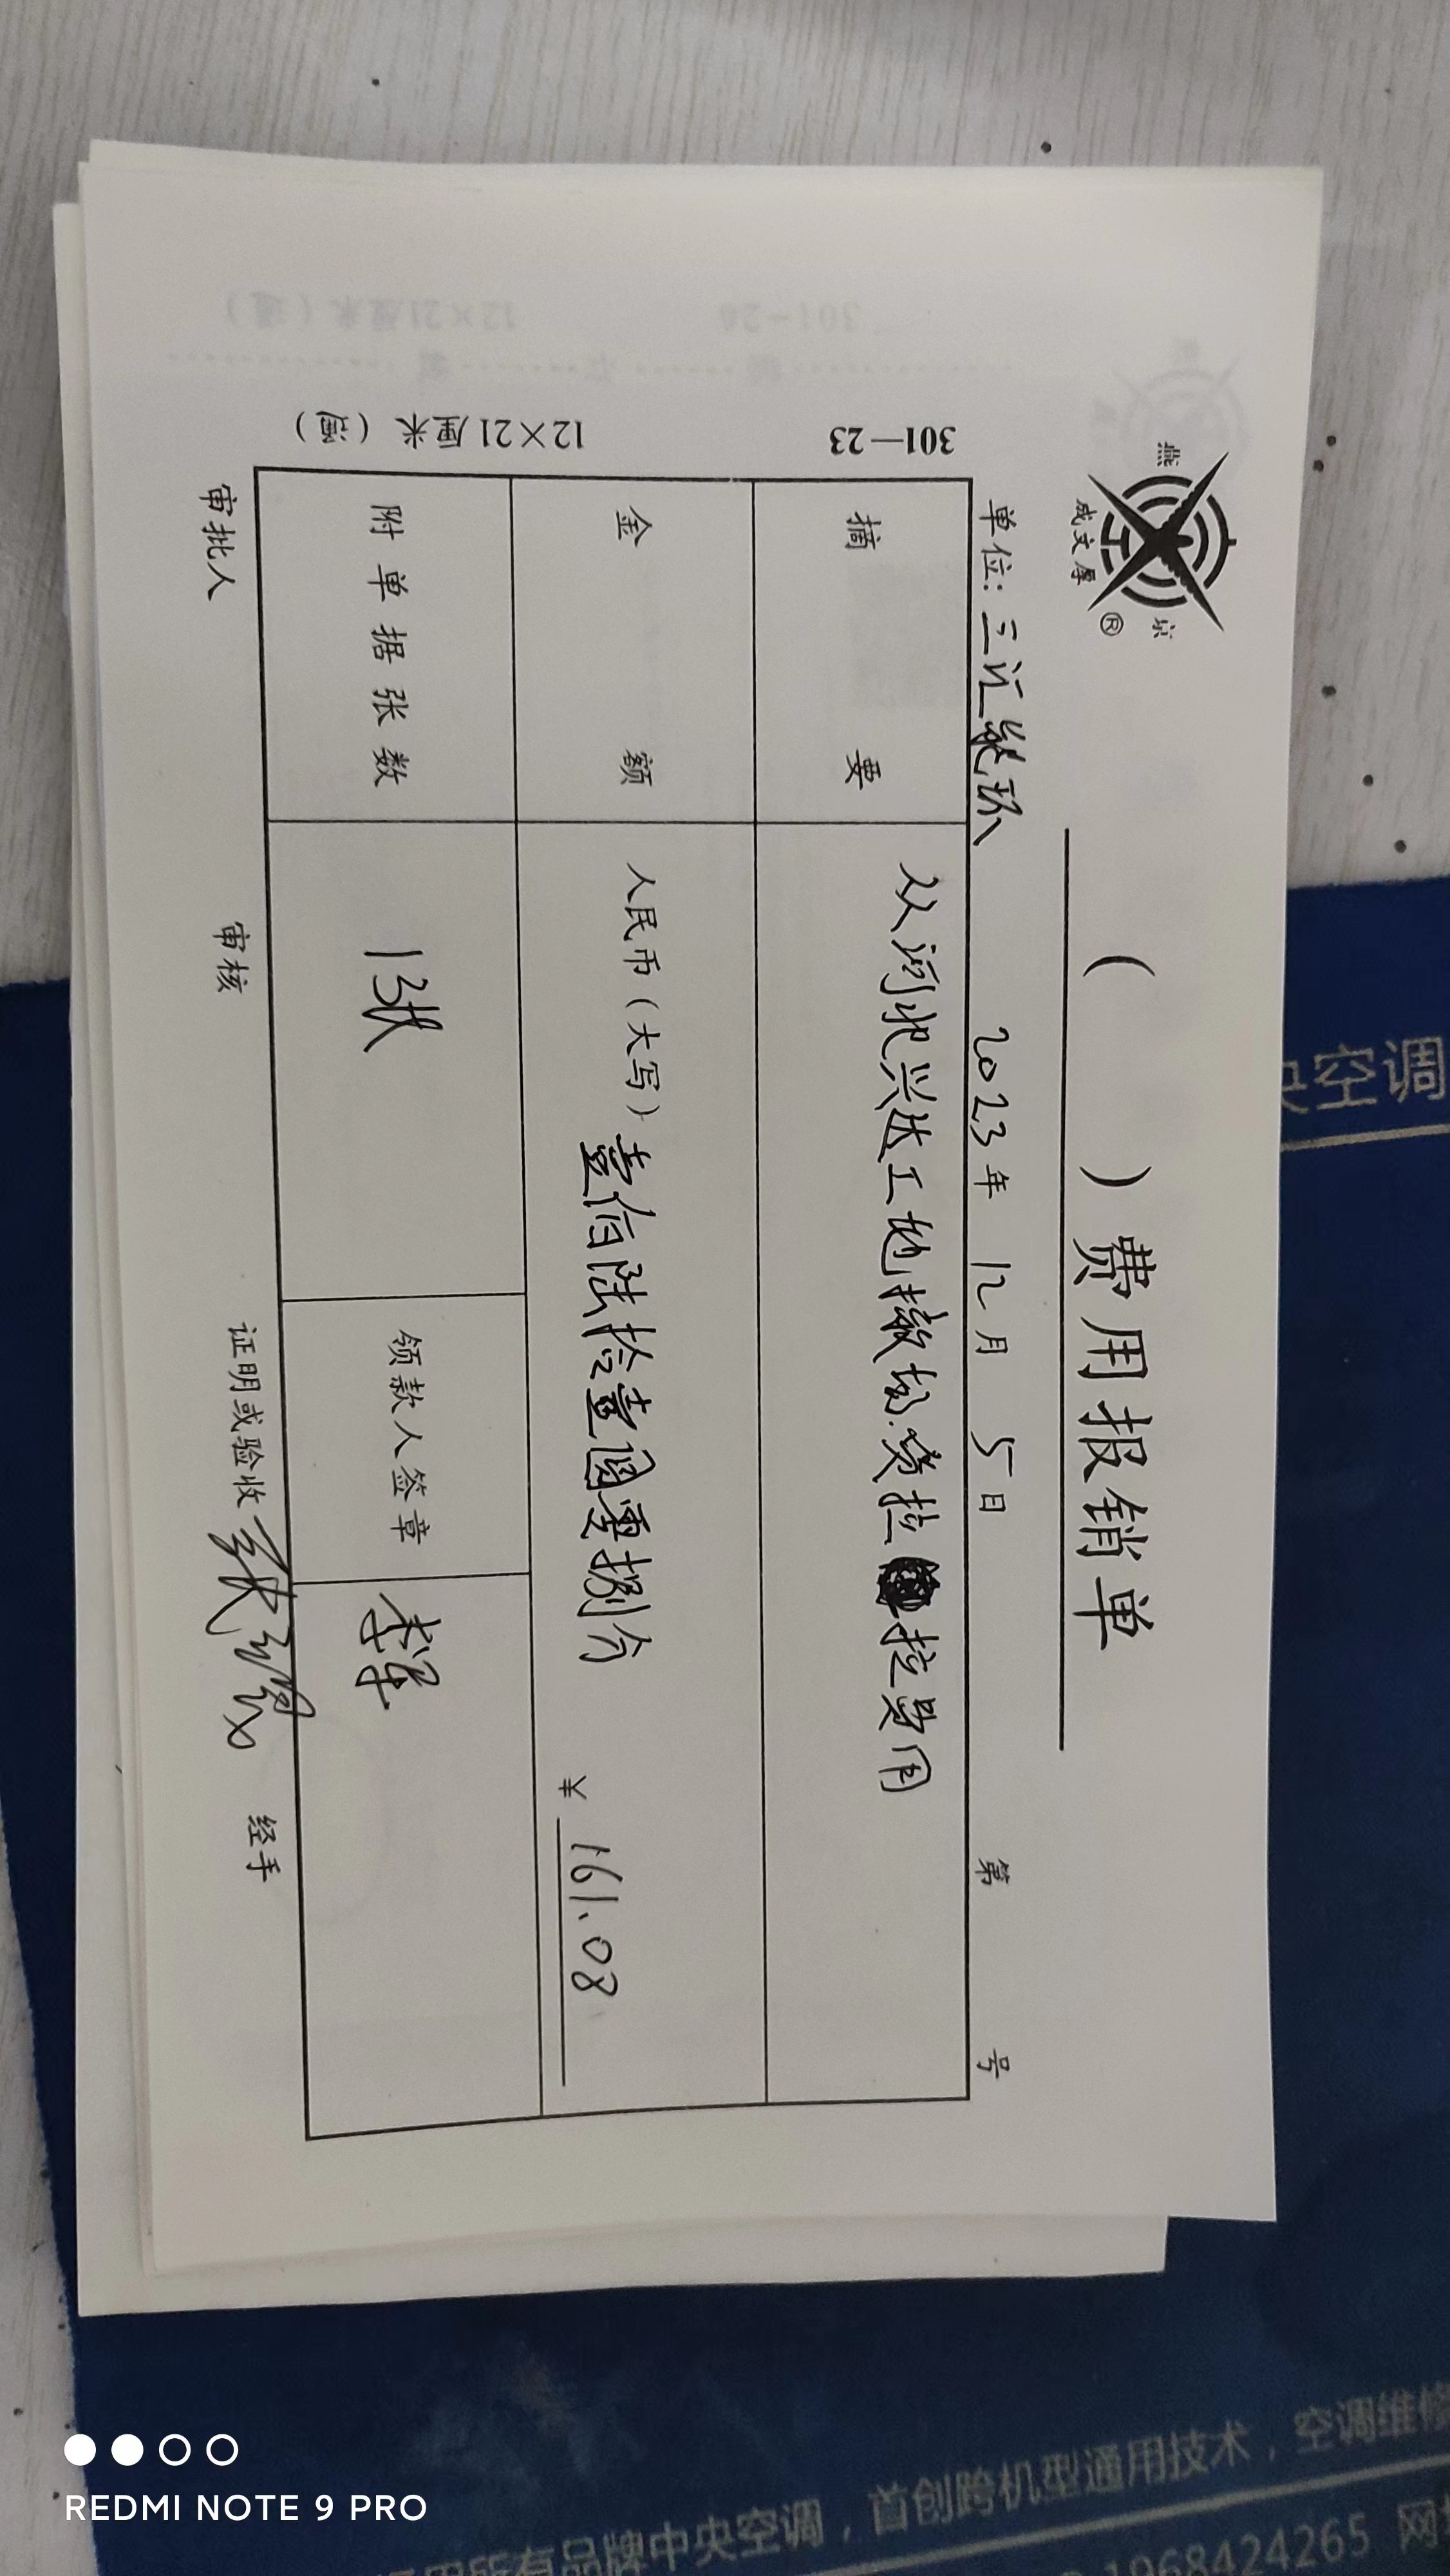 燕京
成文厚®
( )费用报销单
单位: 三江 2023年 12月 5日 第 号
摘要 从河北兴达工地撤场.货拉拉费用
金额 人民币(大写) 壹佰陆拾壹圆零捌分 ¥ 161.08
附单据张数 13张 领款人签章
审批人 审核 证明或验收 经手
301—23 12×21厘米(通)
央空调
所有品牌中央空调，首创跨机型通用技术，空调维修
1968424265 网
REDMI NOTE 9 PRO